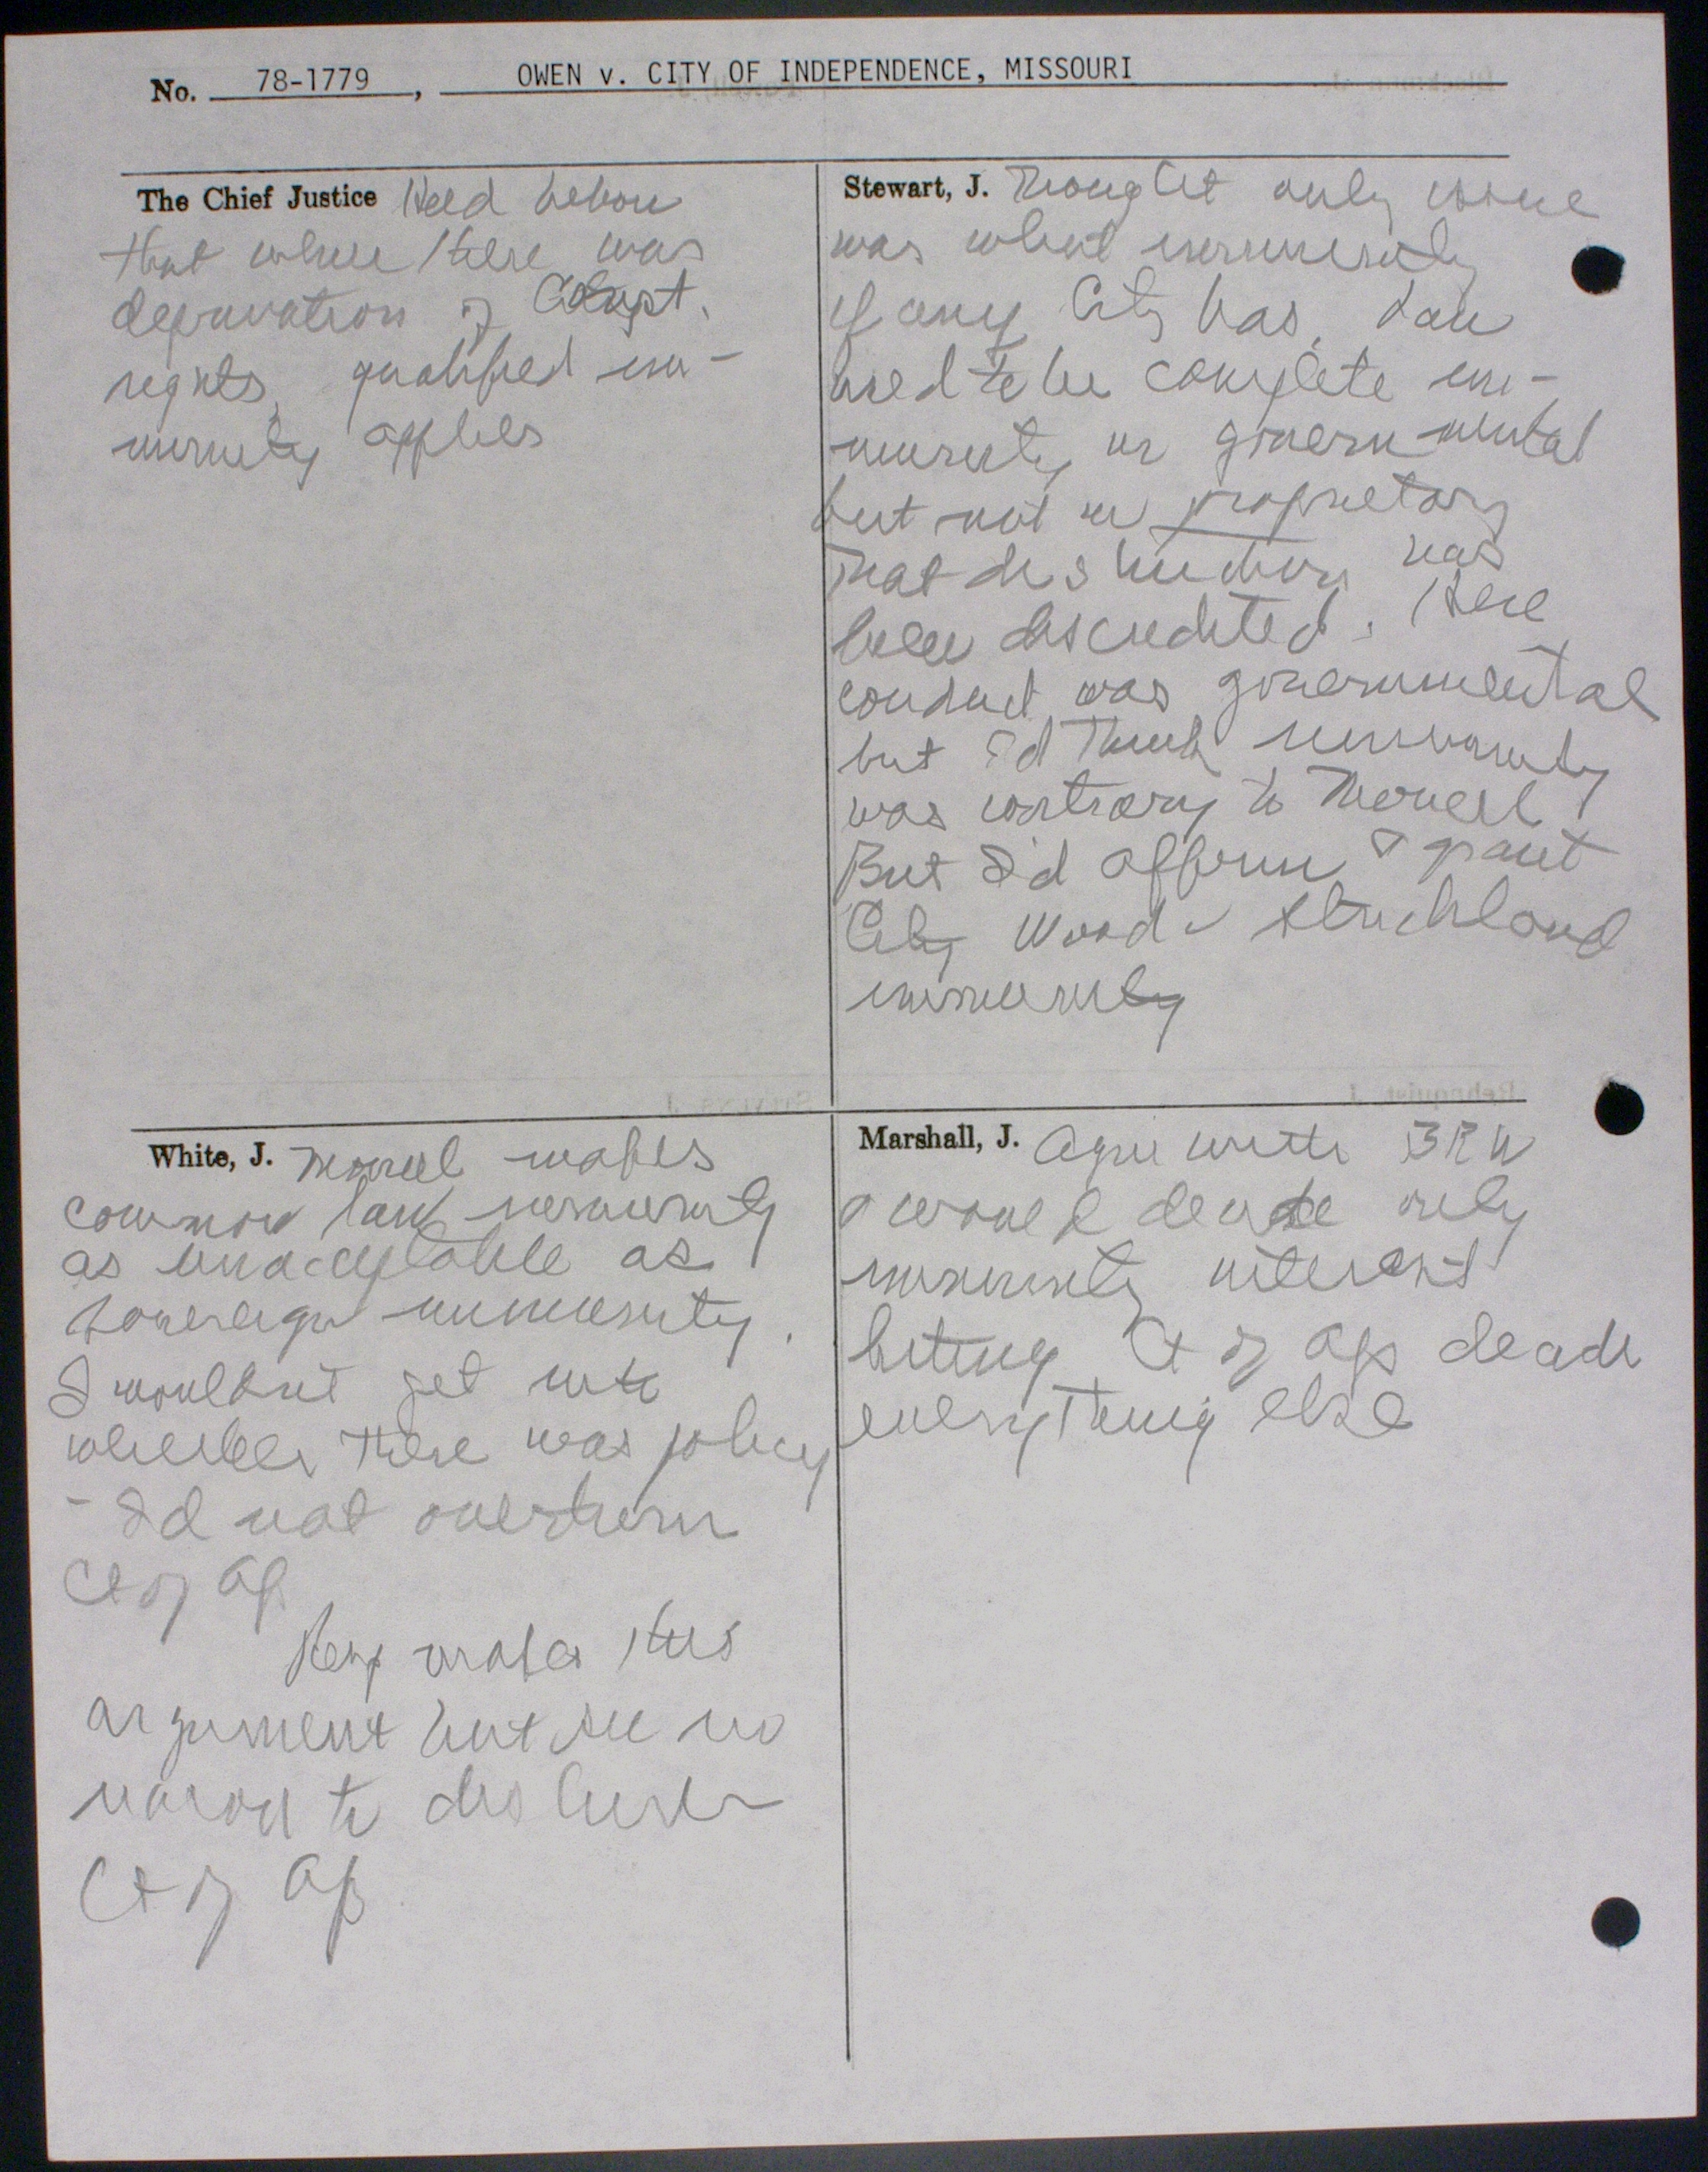 No. 78-1779, OWEN v. CITY OF INDEPENDENCE, MISSOURI
The Chief Justice Held below
that where there was
deprivation of Const.
rights, qualified im-
munity applies
Stewart, J. Thought only issue
was what immunity
if any City has. Law
used to be complete im-
munity in governmental
but not in proprietary
That distinction has
been discredited. Here
conduct was governmental
but I'd think immunity
was contrary to Monell
But I'd affirm & grant
City Wood v Strickland
immunity
White, J. Monell makes
common law immunity
as unacceptable as
sovereign immunity.
I wouldn't get into
whether there was policy
- I'd not overturn
Ct of Ap
Resp makes this
argument but see no
reason to disturb
Ct of Ap
Marshall, J. Agree with BRW
& would decide only
immunity interest
letting Ct of Aps decide
everything else